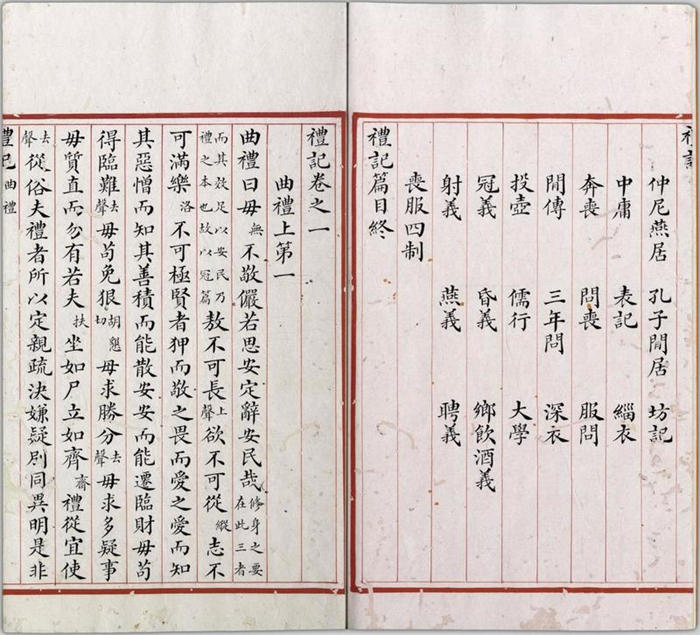 禮記
仲尼燕居 孔子閒居 坊記
中庸 表記 緇衣
奔喪 問喪 服問
間傳 三年問 深衣
投壺 儒行 大學
冠義 昏義 鄉飲酒義
射義 燕義 聘義
喪服四制
禮記篇目終
禮記卷之一
曲禮上第一
曲禮曰毋無不敬儼若思安定辭安民哉修身之要在此三者
而其效足以安民乃禮之本也故以冠篇敖不可長上聲欲不可從縱志不
可滿樂洛不可極賢者狎而敬之畏而愛之愛而知
其惡憎而知其善積而能散安安而能遷臨財毋苟
得臨難去聲毋苟免狠胡懇切毋求勝分去聲毋求多疑事
毋質直而勿有若夫扶坐如尸立如齊齋禮從宜使
去聲從俗夫禮者所以定親疏決嫌疑別同異明是非
禮記 曲禮